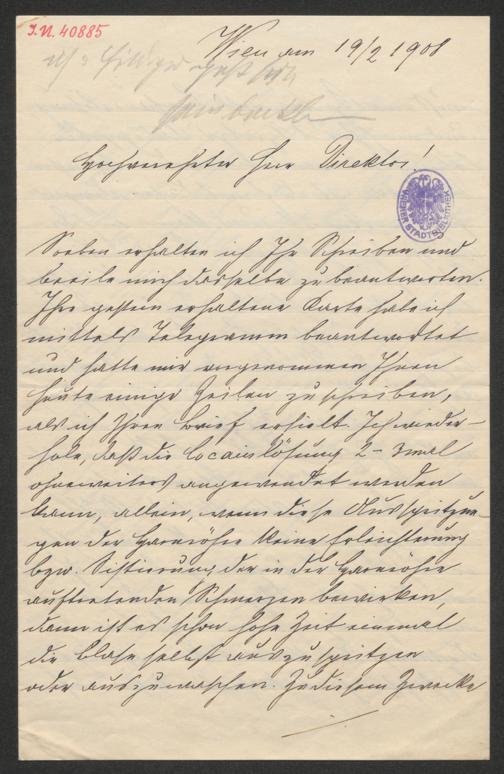 I.N. 40885
Wien am 19/2 1908
Hochverehrter Herr Direktor!
STADTBIBLIOTHEK
Soeben erhalten ich Ihr Schreiben und
beeile mich dasselbe zu beantworten.
Ihre gestern erhaltene Karte habe ich
mittels Telegramm beantwortet
und hatte mir vorgenommen Ihnen
heute einige Zeilen zu schreiben,
als ich Ihren Brief erhielt. Ich wieder-
hole, daß die Locainlösung 2–3mal
ohneweiters angewendet werden
kann, allein, wenn diese Ausspritzun-
gen der Harnröhre keine Erleichterung
bzw. Sistierung der in der Harnröhre
auftretenden Schmerzen bewirken,
dann ist es schon hohe Zeit einmal
die Blase selbst auszuspritzen
oder auszuwaschen. Zu diesem Zwecke